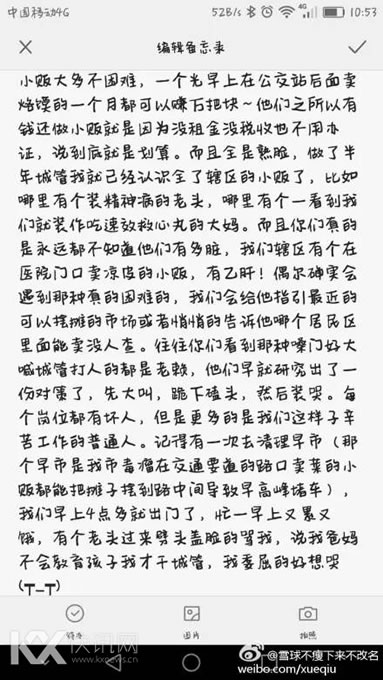 中国移动4G
528B/s
4G
10:53
编辑备忘录
小贩大多不困难，一个光早上在公交站后面卖
烙馍的一个月都可以赚万把块～他们之所以有
钱还做小贩就是因为没租金没税收也不用办
证，说到底就是划算。而且全是熟脸，做了半
年城管我就已经认识全了辖区的小贩了，比如
哪里有个装精神病的老头，哪里有个一看到我
们就装作吃速放救心丸的大妈。而且你们真的
是永远都不知道他们有多脏，我们辖区有个在
医院门口卖凉皮的小贩，有乙肝！偶尔确实会
遇到那种真的困难的，我们会给他指引最近的
可以摆摊的市场或者悄悄的告诉他哪个居民区
里面能卖没人查。往往你们看到那种嗓门好大
喊城管打人的都是老赖，他们早就研究出了一
份对策了，先大叫，跪下磕头，然后装哭。每
个岗位都有坏人，但是更多的是我们这样子辛
苦工作的普通人。记得有一次去清理早市（那
个早市是我市毒瘤在交通要道的路口卖菜的小
贩都能把摊子摆到路中间导致早高峰堵车），
我们早上4点多就出门了，忙一早上又累又
饿，有个老头过来劈头盖脸的骂我，说我爸妈
不会教育孩子我才干城管，我委屈的好想哭
(┬_┬)
待办
图片
拍照
KX快讯网
www.kxnews.cn
@雪球不瘦下来不改名
weibo.com/xueqiu